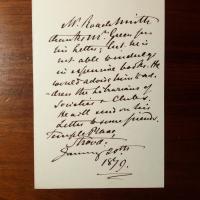 Mr. Roach Smith
thanks Mr. Green for
his letter; but he is
not able to indulge
in expensive books. He
would advise him to ad-
dress the Librarians of
Societies & Clubs.
He will send on his
Letter to some friends.
Temple Place,
Strood.
January 20th
1879.